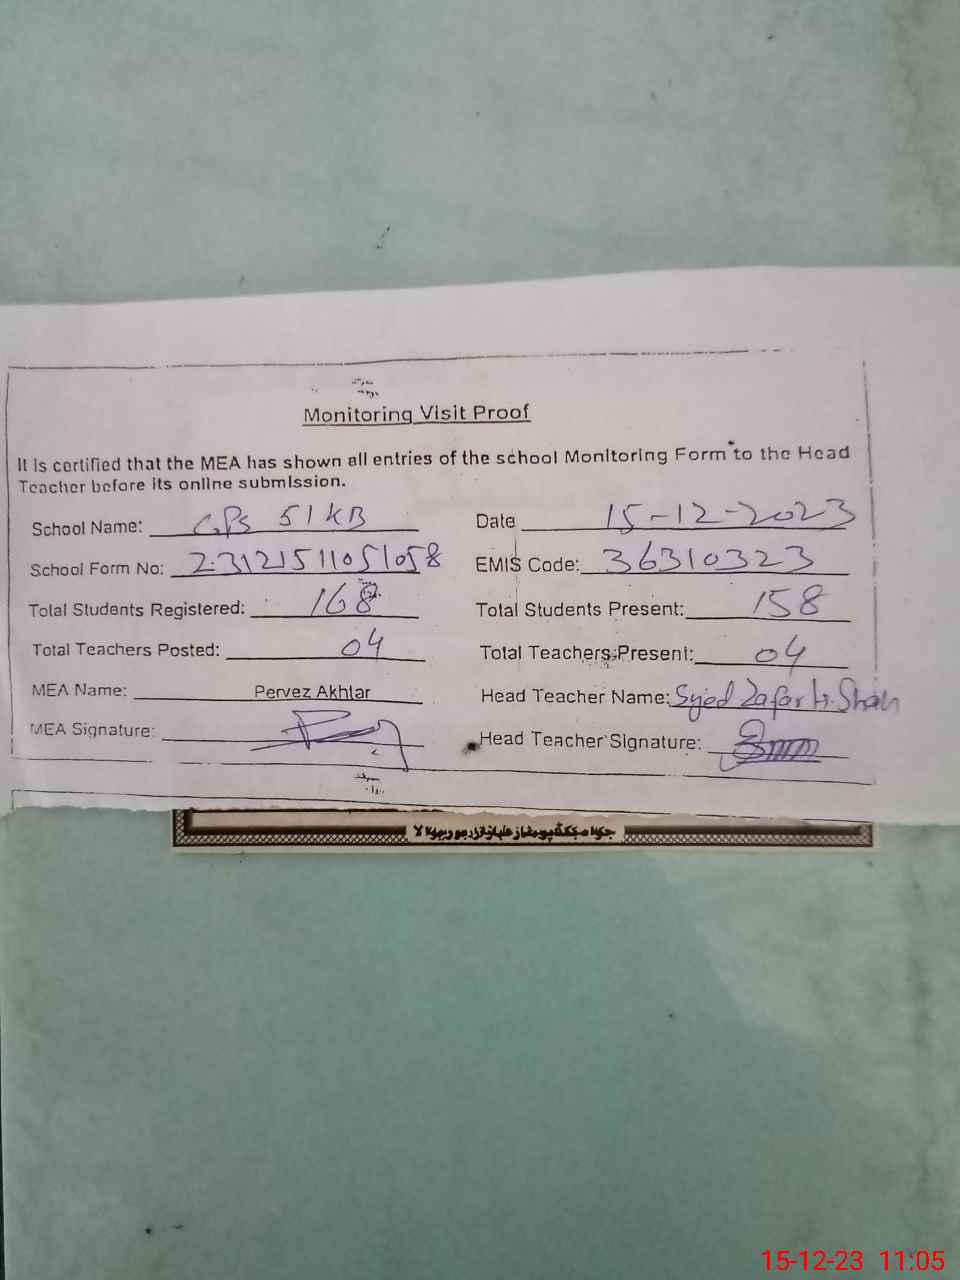 Monitoring Visit Proof
It is certified that the MEA has shown all entries of the school Monitoring Form to the Head
Teacher before its online submission.
School Name: GPS 51 KB
Date 15-12-2023
School Form No: 23121511051058
EMIS Code: 36310323
Total Students Registered: 168
Total Students Present: 158
Total Teachers Posted: 04
Total Teachers Present: 04
MEA Name: Pervez Akhtar
Head Teacher Name: Syed Zafar H. Shah
MEA Signature:
Head Teacher Signature:
15-12-23 11:05